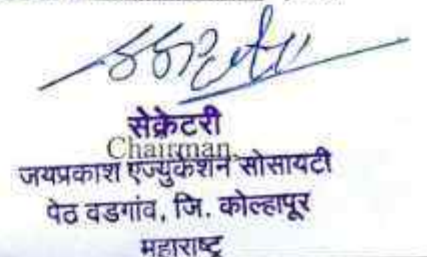 सेक्रेटरी
Chairman
जयप्रकाश एज्युकेशन सोसायटी
पेठ वडगांव, जि. कोल्हापूर
महाराष्ट्र